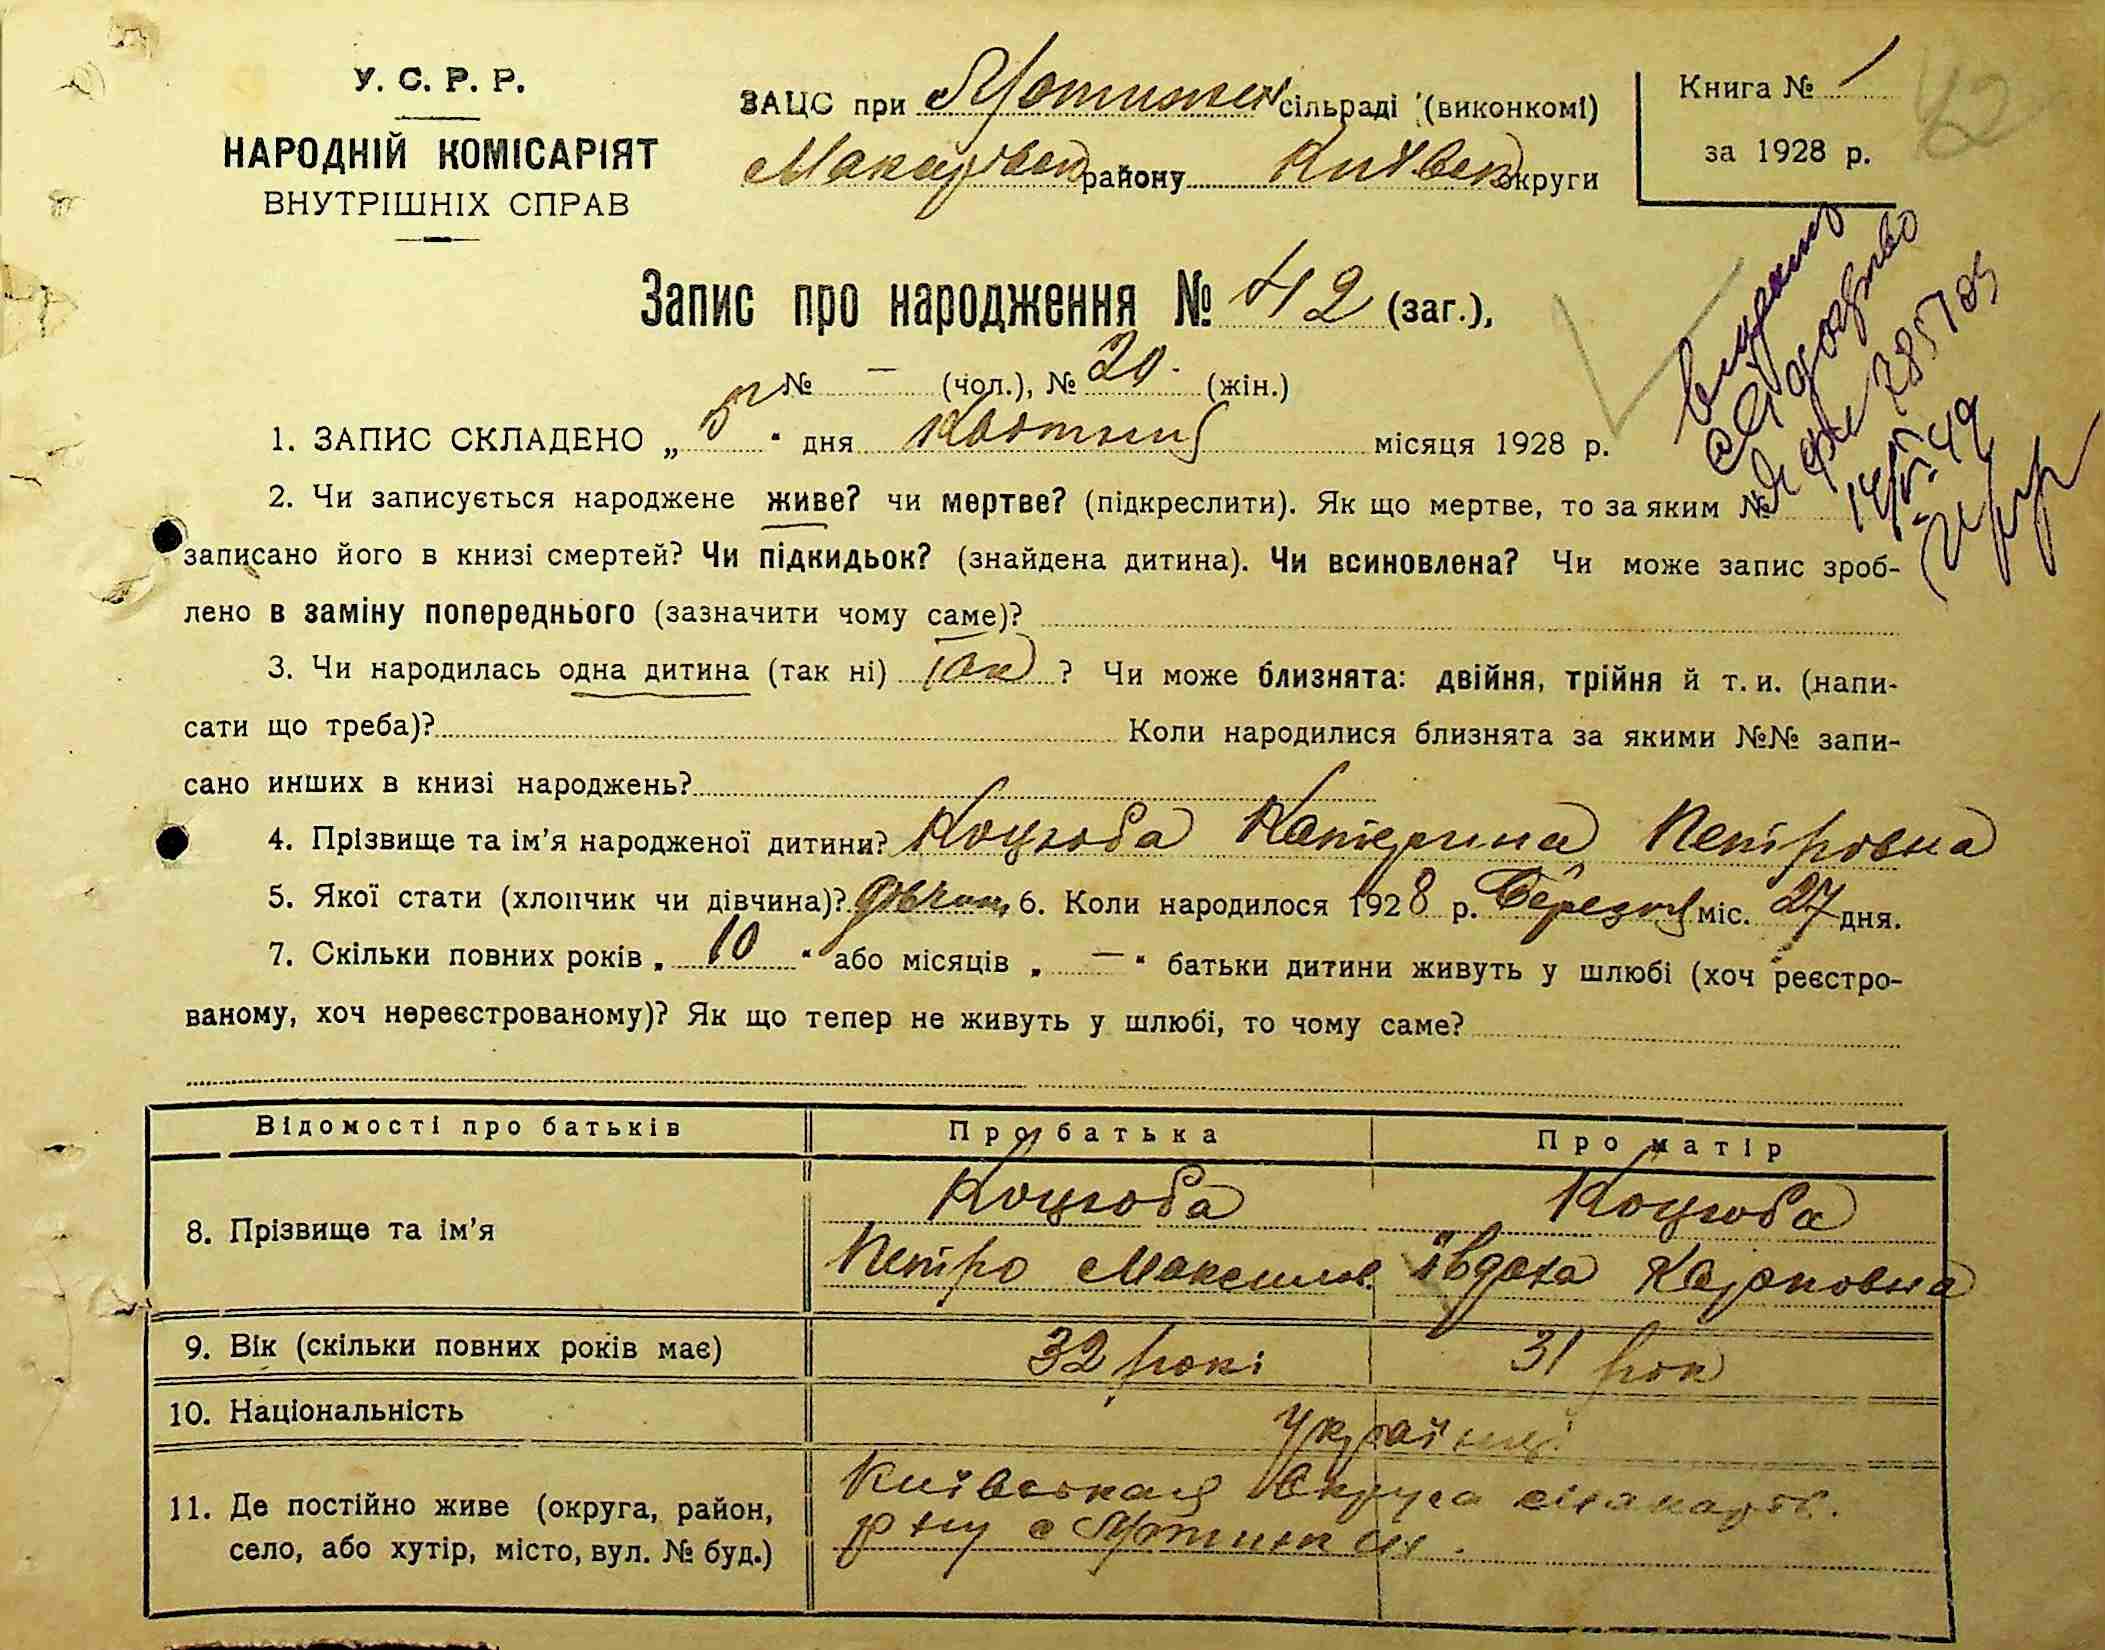 У. С. Р. Р.
НАРОДНІЙ КОМІСАРІЯТ
ВНУТРІШНІХ СПРАВ
ЗАЦС при сільраді (виконкомі)
району округи
Книга № 1
за 1928 р.
42
Запис про народження № 42 (заг.),
№ — (чол.), № 20. (жін.)
1. ЗАПИС СКЛАДЕНО „5“ дня Квітня місяця 1928 р.
2. Чи записується народжене живе? чи мертве? (підкреслити). Як що мертве, то за яким №
записано його в книзі смертей? Чи підкидьок? (знайдена дитина). Чи всиновлена? Чи може запис зроб-
лено в заміну попереднього (зазначити чому саме)?
3. Чи народилась одна дитина (так ні) так ? Чи може близнята: двійня, трійня й т. и. (напи-
сати що треба)? Коли народилися близнята за якими №№ запи-
сано инших в книзі народжень?
4. Прізвище та ім’я народженої дитини? Коцюба Катерина Петровна
5. Якої стати (хлопчик чи дівчина)? 6. Коли народилося 1928 р. Березня міс. 27 дня.
7. Скільки повних років „10“ або місяців „—“ батьки дитини живуть у шлюбі (хоч реєстро-
ваному, хоч нереєстрованому)? Як що тепер не живуть у шлюбі, то чому саме?
Відомості про батьків Про батька Про матір
8. Прізвище та ім’я Коцюба Коцюба
Петро Максимов. Івдоха Карповна
9. Вік (скільки повних років має) 32 рокі 31 рок
10. Національність Українці
11. Де постійно живе (округа, район,
село, або хутір, місто, вул. № буд.)
Київская Округа Макарів.